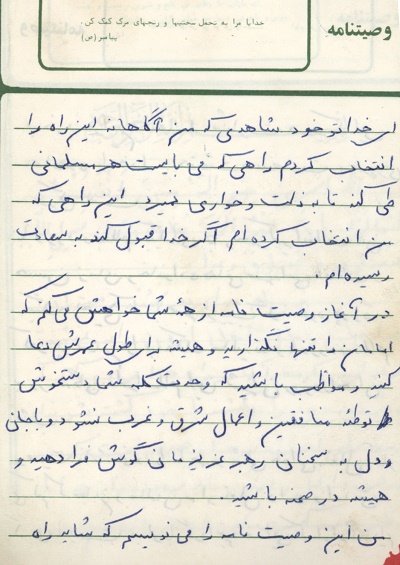 وصیتنامه
خدایا مرا به تحمل سختیها و رنجهای مرگ کمک کن.
پیامبر (ص)
ای خدا تو خود شاهدی که من آگاهانه این راه را
انتخاب کردم راهی که می بایست هر مسلمانی
طی کند تا به ذلت و خواری نمیرد. این راهی که
من انتخاب کرده ام اگر خدا قبول کند به سعادت
رسیده ام.
در آغاز وصیت نامه از همۀ شما خواهش می کنم که
امامان را تنها نگذارید و همیشه برای طول عمرش دعا
کنید و مواظب باشید که وحدت کلمه شما دستخوش
توطئه منافقین و اعمال شرق و غرب نشود و با جانی
و دل به سخنان رهبر عزیزمان گوش فرا دهید و
همیشه در صحنه باشید.
من این وصیت نامه را می نویسم که شاید راه